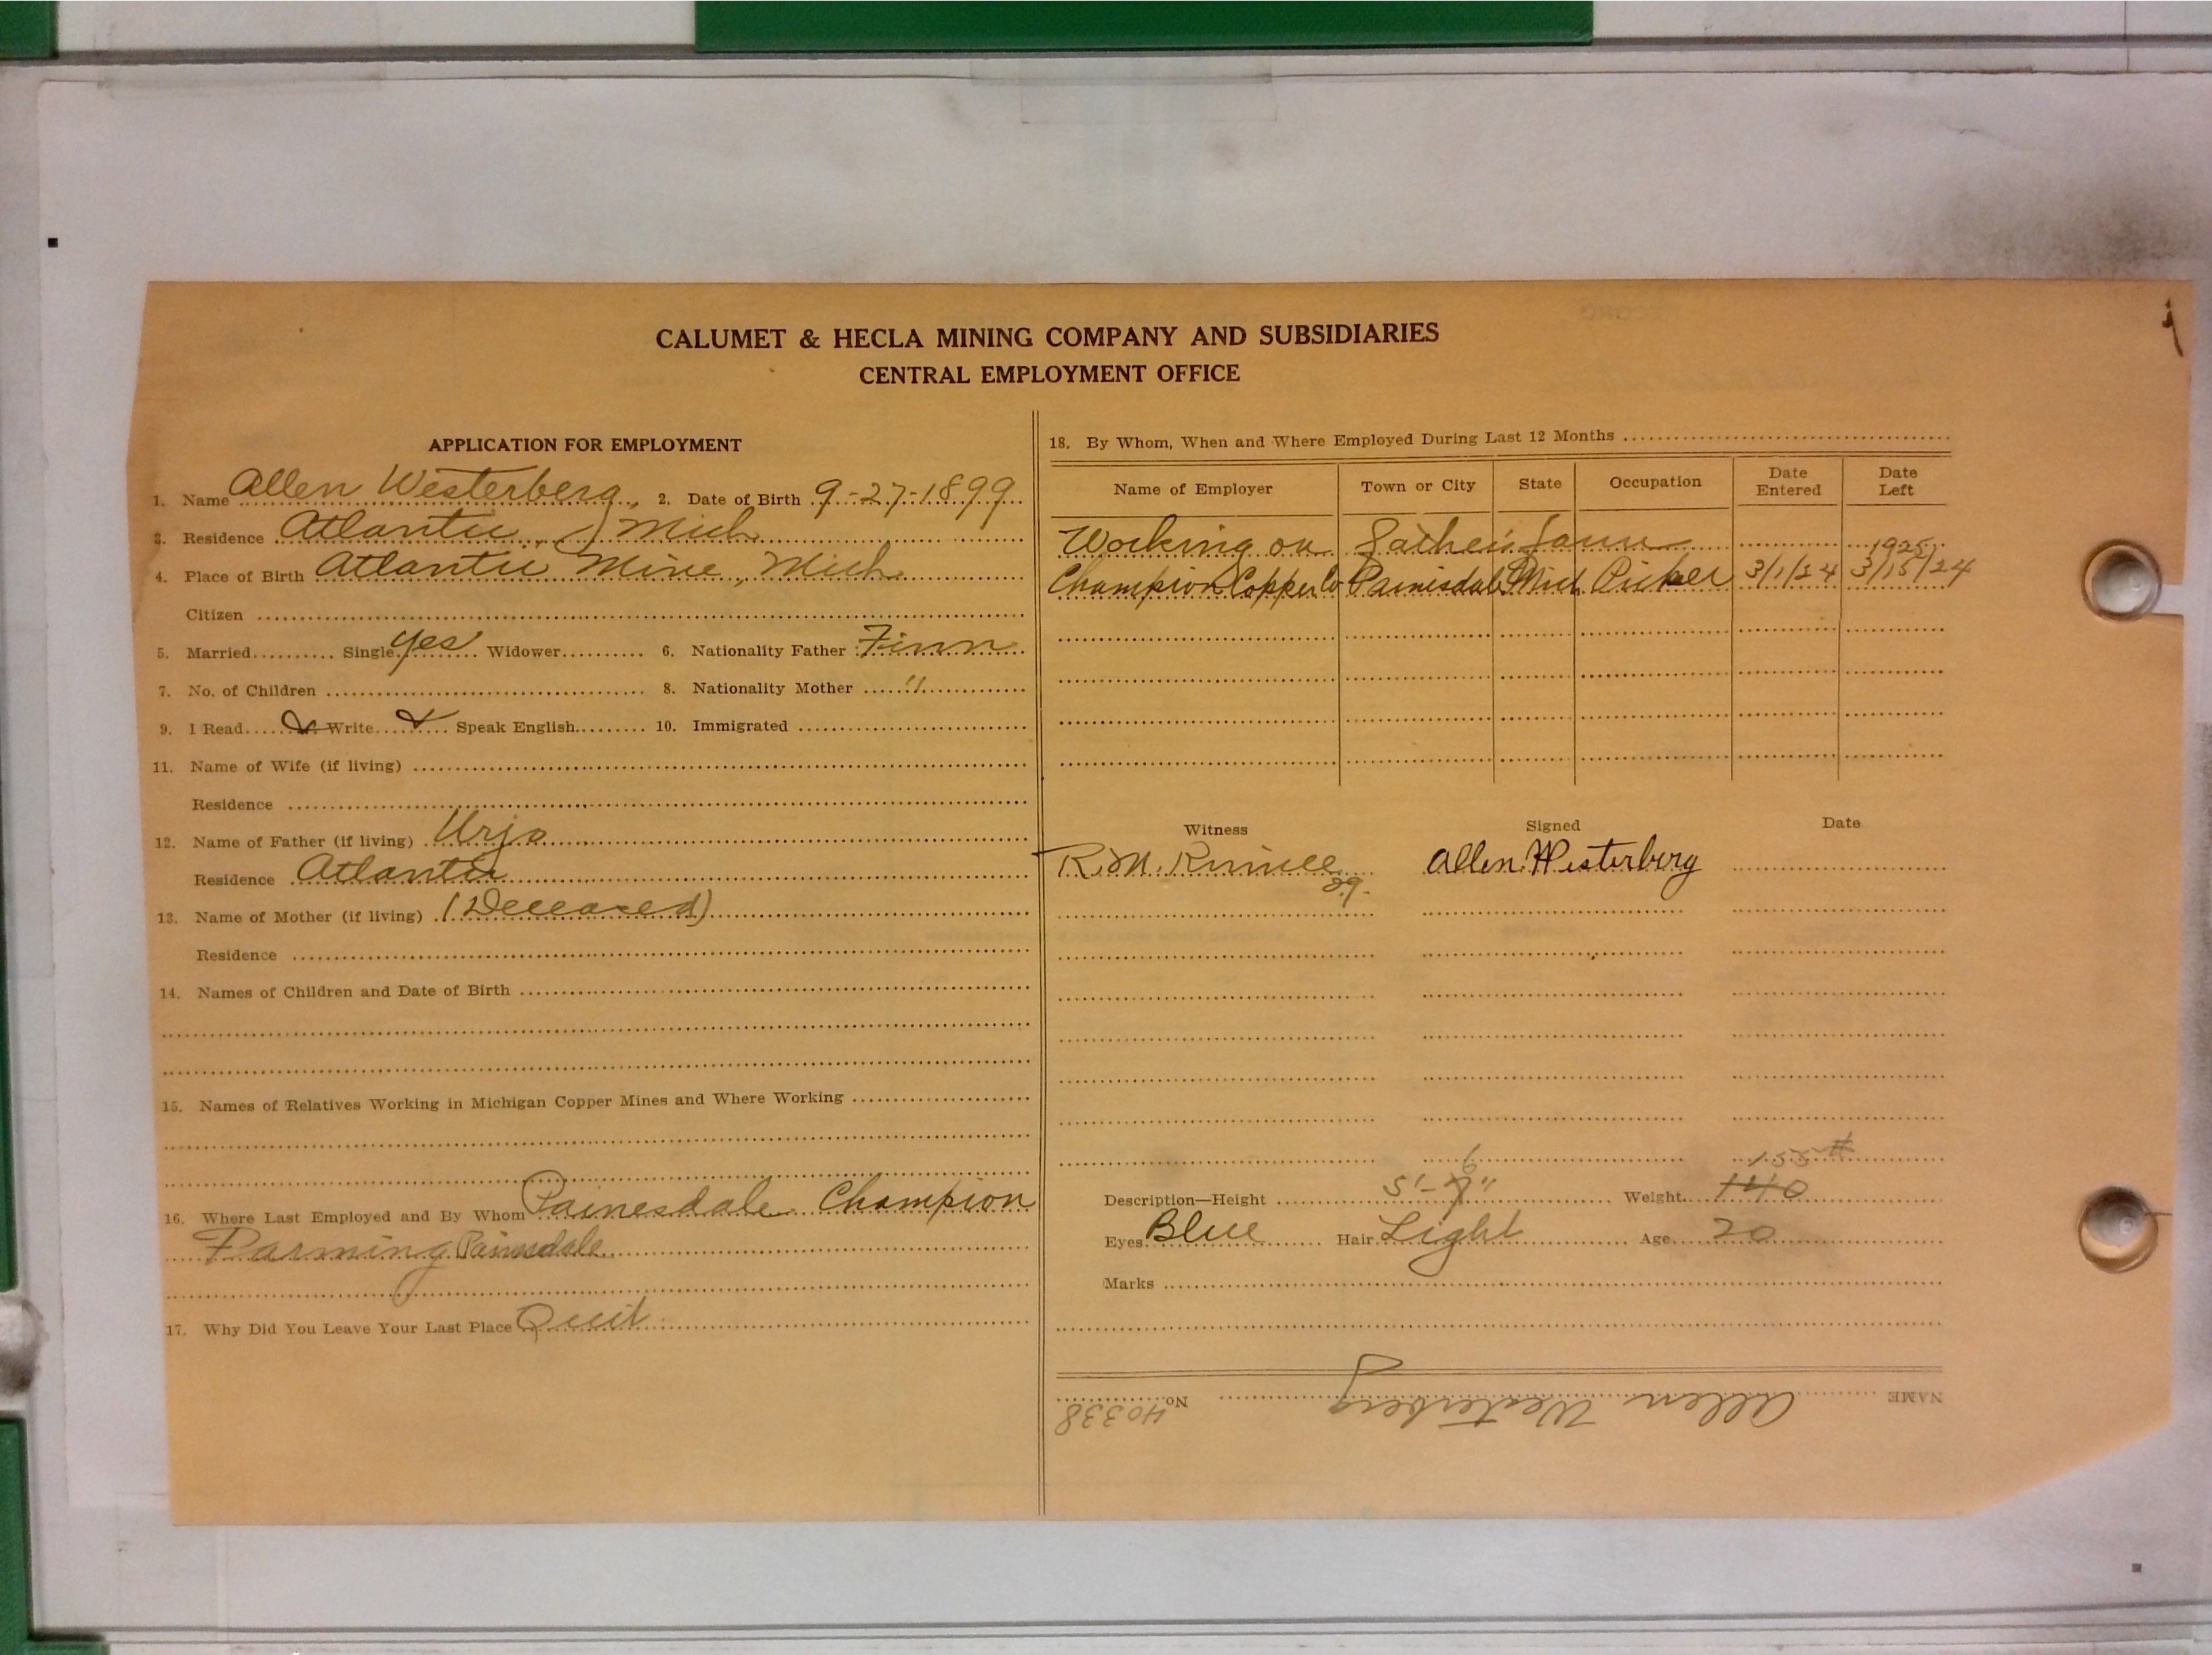 CALUMET & HECLA MINING COMPANY AND SUBSIDIARIES
CENTRAL EMPLOYMENT OFFICE
APPLICATION FOR EMPLOYMENT
1. Name Allen Westerberg, 2. Date of Birth 9-27-1899
3. Residence Atlantic, Mich
4. Place of Birth Atlantic Mine, Mich
Citizen
5. Married Single yes Widower 6. Nationality Father Finn
7. No. of Children 8. Nationality Mother "
9. I Read Write Speak English 10. Immigrated
11. Name of Wife (if living)
Residence
12. Name of Father (if living) Urjo
Residence Atlantic
13. Name of Mother (if living) (Deceased)
Residence
14. Names of Children and Date of Birth
15. Names of Relatives Working in Michigan Copper Mines and Where Working
16. Where Last Employed and By Whom Painesdale Champion
Farming Painesdale
17. Why Did You Leave Your Last Place Quit
18. By Whom, When and Where Employed During Last 12 Months
Name of Employer Town or City State Occupation Date Entered Date Left
Working on Father's farm 1925
Champion Copper Co Painesdale Mich Picker 3/1/24 3/15/24
Witness Signed Date
R. M. Allen Westerberg
29.
6 155 #
Description—Height 5'-7" Weight 140
Eyes Blue Hair Light Age 20
Marks
NAME Allen Westerberg No. 40338